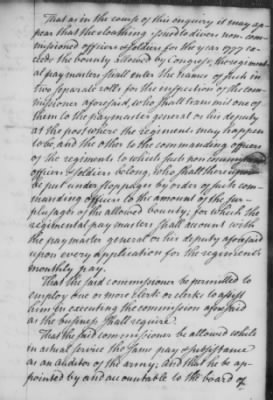 That as in the course of this enquiry it may ap-
pear that the cloathing issued to divers non-com-
missioned officers & soldiers for the year 1777 ex-
ceeds the bounty allowed by Congress, the regiment-
al paymasters shall enter the names of such in
two separate rolls for the inspection of the com-
missioner aforesaid, who shall transmit one of
them to the paymaster general or his deputy
at the post where the regiments may happen
to be, and the other to the commanding officers
of the regiments to which such noncommissioned
officers & soldiers belong, who shall thereupon
be put under stoppages by order of such com-
manding officers to the amount of the sur-
plusage of the allowed bounty; for which the
regimental pay masters shall account with
the paymaster general or his deputy aforesaid
upon every application for the regiment's
monthly pay.
That the said commissioner be permitted to
employ one or more clerk or clerks to assist
him in executing the commission aforesaid
as the business shall require.
That the said commissioner be allowed while
in actual service the same pay & subsistance
as an auditor of the army; and that he be ap-
pointed by and accountable to the board of